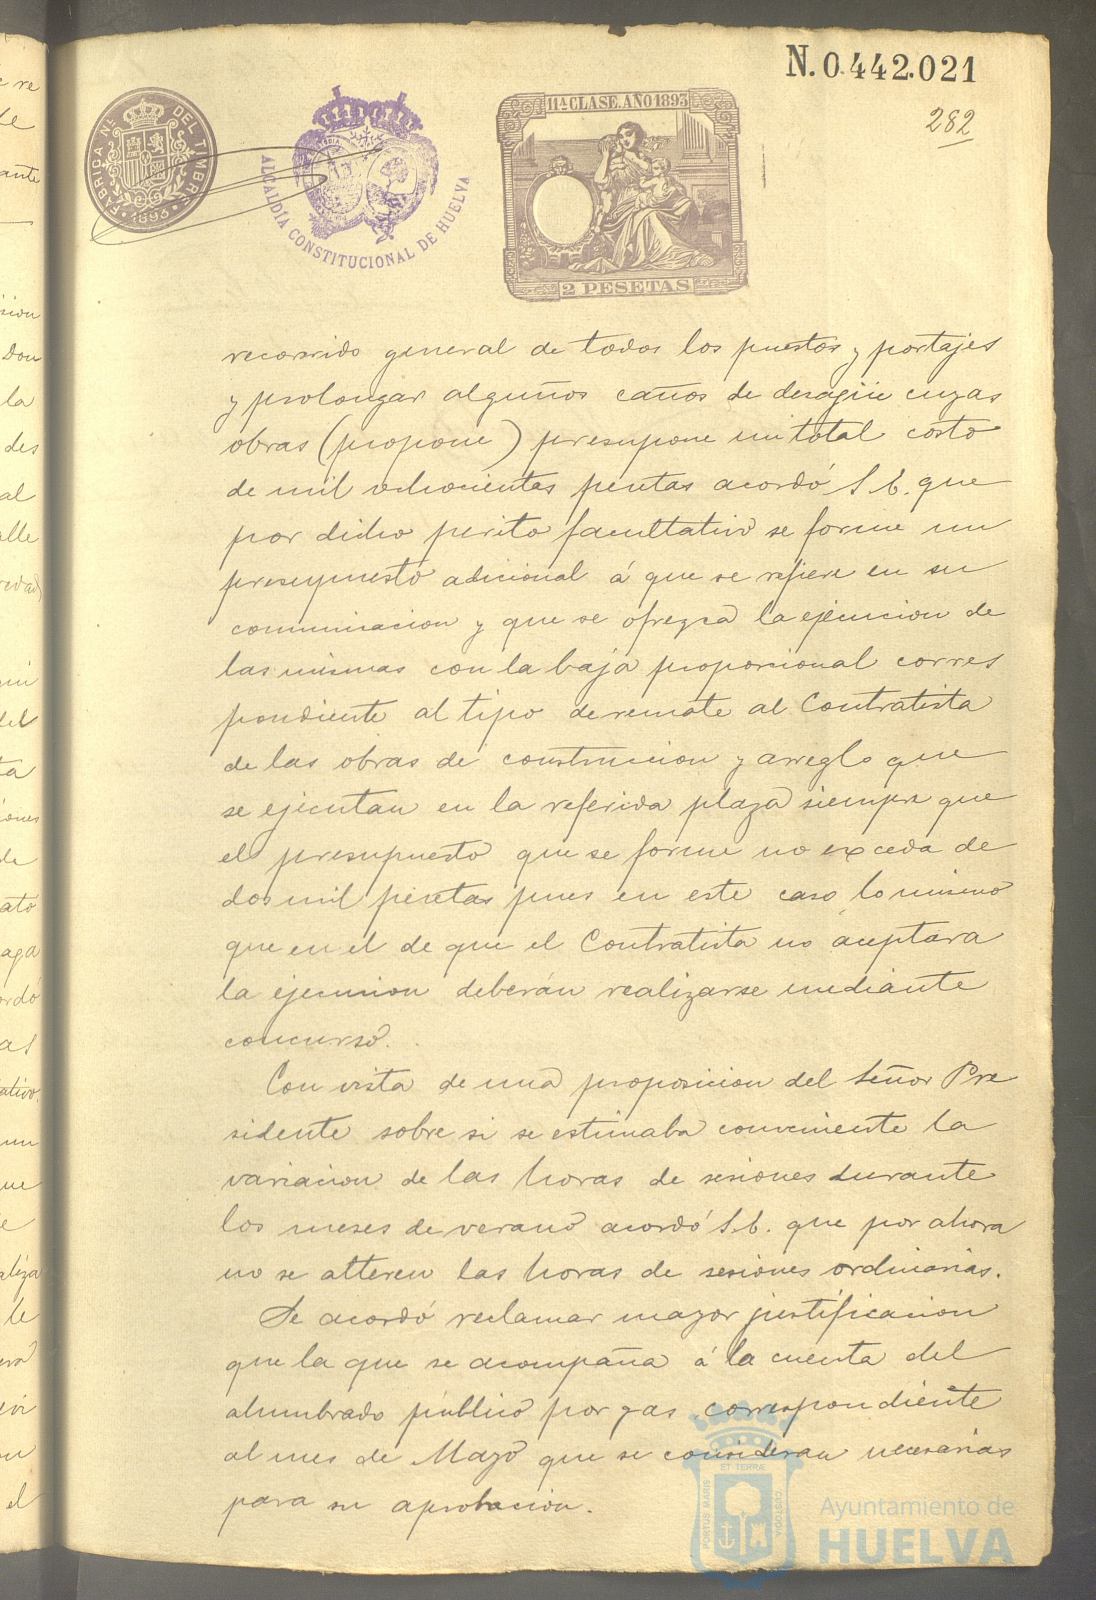 N. 0.442.021
282
FABRICA NL. DEL TIMBRE
1893
ALCALDÍA CONSTITUCIONAL DE HUELVA
11ª CLASE. AÑO 1893
2 PESETAS
recorrido general de todos los puestos y portajes
y prolongar alguños caños de desagüe cuyas
obras (propone) presupone un total costo
de mil ochocientas pesetas acordó S. E. que
por dicho perito facultativo se forme un
presupuesto adicional á que se refiere en su
comunicacion y que se ofrezca la ejecucion de
las mismas con la baja proporcional corres
pondiente al tipo de remate al Contratista
de las obras de construccion y arreglo que
se ejecutan en la referida plaza siempre que
el presupuesto que se forme no exceda de
dos mil pesetas pues en este caso lo mismo
que en el de que el Contratista no aceptara
la ejecucion deberán realizarse mediante
concurso.
Con vista de una proposicion del Señor Pre
sidente sobre si se estimaba conveniente la
variacion de las horas de sesiones durante
los meses de verano acordó S. E. que por ahora
no se alteren las horas de sesiones ordinarias.
Se acordó reclamar mayor justificacion
que la que se acompaña á la cuenta del
alumbrado público por gas correspondiente
al mes de Mayo que se consideran necesarias
para su aprobacion.
PORTUS MARIS ET TERRÆ CUSTODIA
Ayuntamiento de
HUELVA